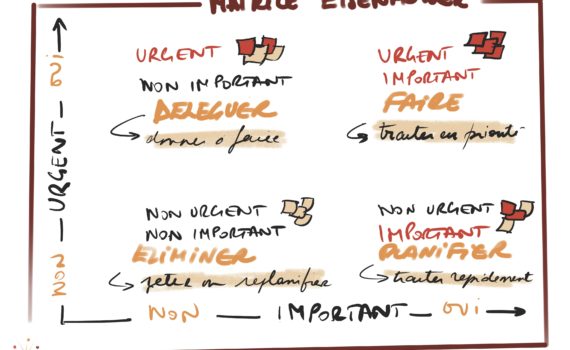 MATRICE EISENHOWER
URGENT
NON IMPORTANT
DELEGUER
donner à faire
URGENT
IMPORTANT
FAIRE
traiter en priorité
NON URGENT
NON IMPORTANT
ELIMINER
jeter ou replanifier
NON URGENT
IMPORTANT
PLANIFIER
traiter rapidement
NON — URGENT — OUI
NON — IMPORTANT — OUI